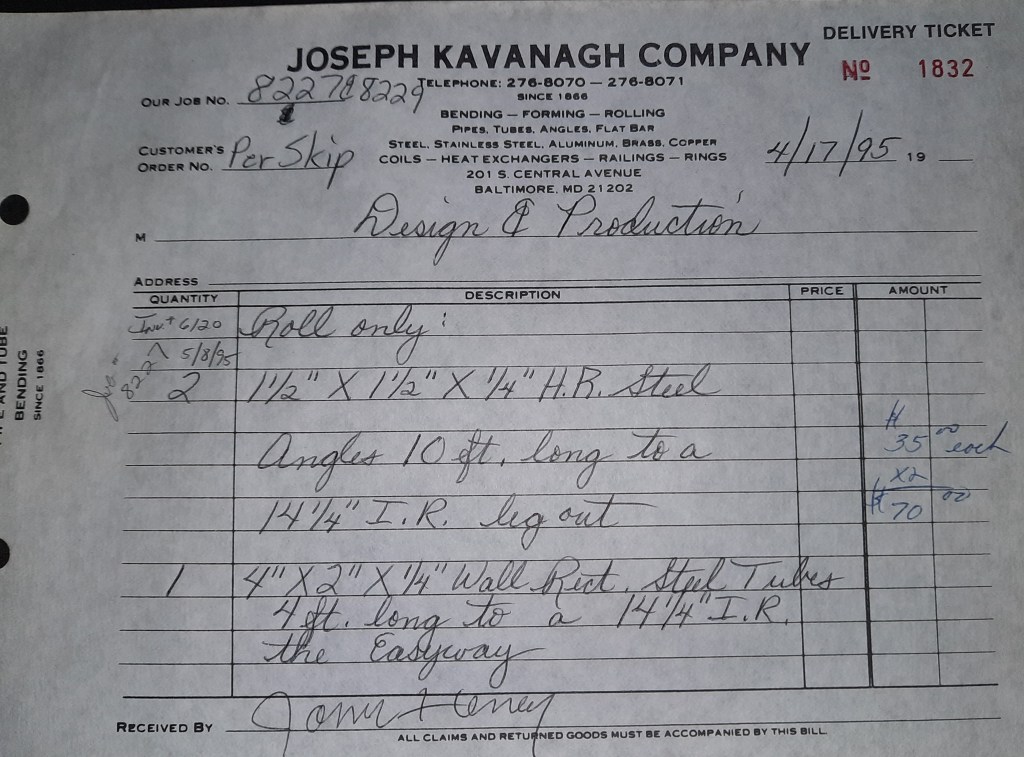 DELIVERY TICKET
JOSEPH KAVANAGH COMPANY
Nº 1832
TELEPHONE: 276-8070 — 276-8071
SINCE 1866
OUR JOB NO. 8227 8229
BENDING — FORMING — ROLLING
PIPES, TUBES, ANGLES, FLAT BAR
STEEL, STAINLESS STEEL, ALUMINUM, BRASS, COPPER
COILS — HEAT EXCHANGERS — RAILINGS — RINGS
CUSTOMER'S
ORDER NO. Per Skip
4/17/95 19
201 S. CENTRAL AVENUE
BALTIMORE, MD 21202
M Design & Production
ADDRESS
QUANTITY DESCRIPTION PRICE AMOUNT
6/20 Roll only:
5/8/95
822
2 1 1/2" X 1 1/2" X 1/4" H.R. Steel
Angles 10 ft. long to a
$ 35 00 each
X2
$ 70 00
14 1/4" I.R. leg out
1 4" X 2" X 1/4" Wall Rect. Steel Tubes
4 ft. long to a 14 1/4" I.R.
the Easyway
RECEIVED BY
ALL CLAIMS AND RETURNED GOODS MUST BE ACCOMPANIED BY THIS BILL
AND TUBE
BENDING
SINCE 1866